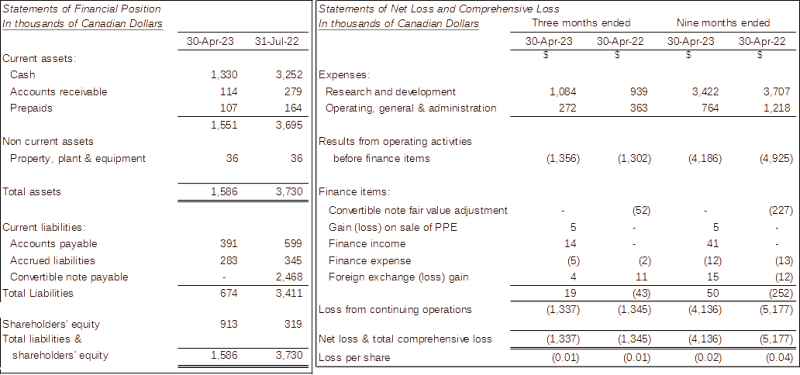 Statements of Financial Position
In thousands of Canadian Dollars
30-Apr-23 31-Jul-22
Current assets:
Cash 1,330 3,252
Accounts receivable 114 279
Prepaids 107 164
1,551 3,695
Non current assets
Property, plant & equipment 36 36
Total assets 1,586 3,730
Current liabilities:
Accounts payable 391 599
Accrued liabilities 283 345
Convertible note payable - 2,468
Total Liabilities 674 3,411
Shareholders' equity 913 319
Total liabilities &
shareholders' equity 1,586 3,730
Statements of Net Loss and Comprehensive Loss
In thousands of Canadian Dollars Three months ended Nine months ended
30-Apr-23 30-Apr-22 30-Apr-23 30-Apr-22
$ $ $ $
Expenses:
Research and development 1,084 939 3,422 3,707
Operating, general & administration 272 363 764 1,218
Results from operating activities
before finance items (1,356) (1,302) (4,186) (4,925)
Finance items:
Convertible note fair value adjustment - (52) - (227)
Gain (loss) on sale of PPE 5 - 5 -
Finance income 14 - 41 -
Finance expense (5) (2) (12) (13)
Foreign exchange (loss) gain 4 11 15 (12)
19 (43) 50 (252)
Loss from continuing operations (1,337) (1,345) (4,136) (5,177)
Net loss & total comprehensive loss (1,337) (1,345) (4,136) (5,177)
Loss per share (0.01) (0.01) (0.02) (0.04)